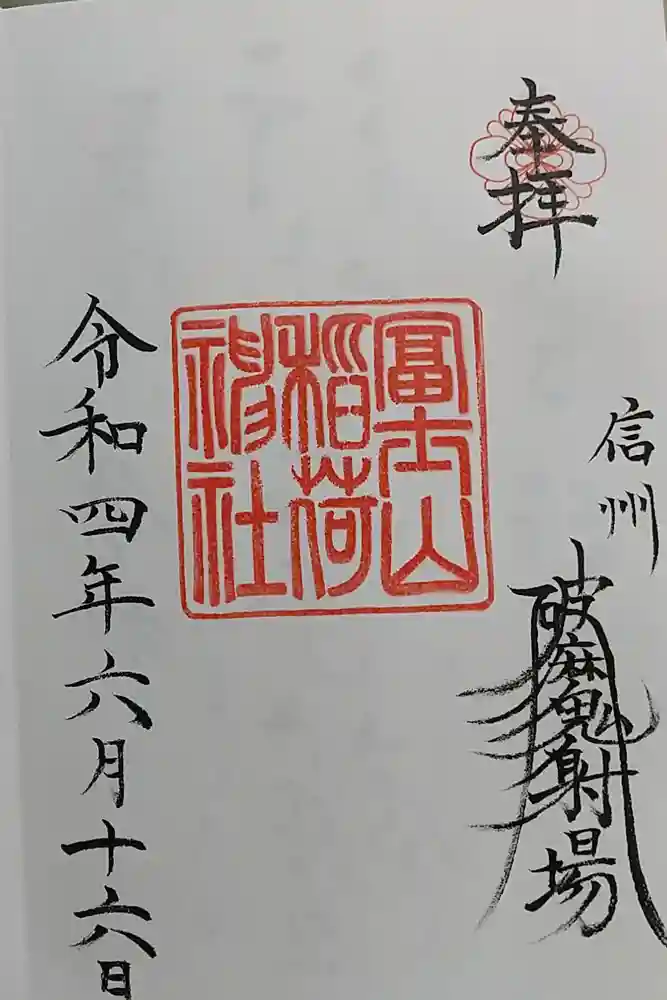 奉拝
信州
破魔射場
冨士山
稲荷
神社
令和四年六月十六日